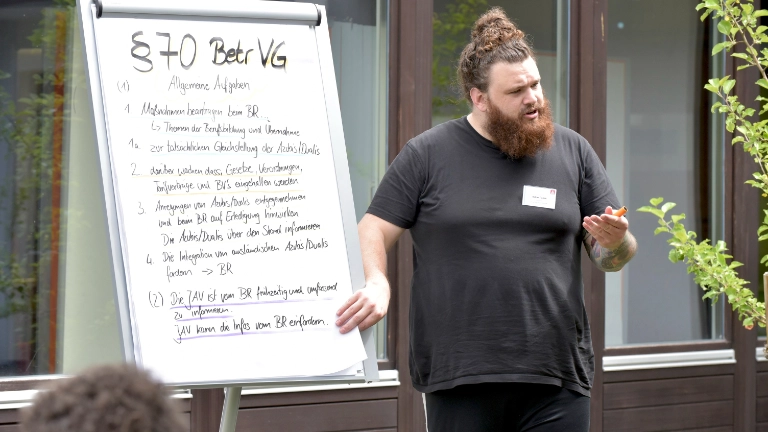 § 70 BetrVG
(1) Allgemeine Aufgaben
1. Maßnahmen beantragen beim BR...
↳ Themen der Berufsbildung und Übernahme
1a. zur tatsächlichen Gleichstellung der Azubis/Dualis
2. darüber wachen dass, Gesetze, Verordnungen,
Tarifverträge und BV's eingehalten werden
3. Anregungen von Azubis/Dualis entgegennehmen
und beim BR auf Erledigung hinwirken
Die Azubis/Dualis über den Stand informieren
4. Die Integration von ausländischen Azubis/Dualis
fördern → BR
(2) Die JAV ist vom BR frühzeitig und umfassend
zu informieren.
JAV kann die Infos vom BR einfordern.